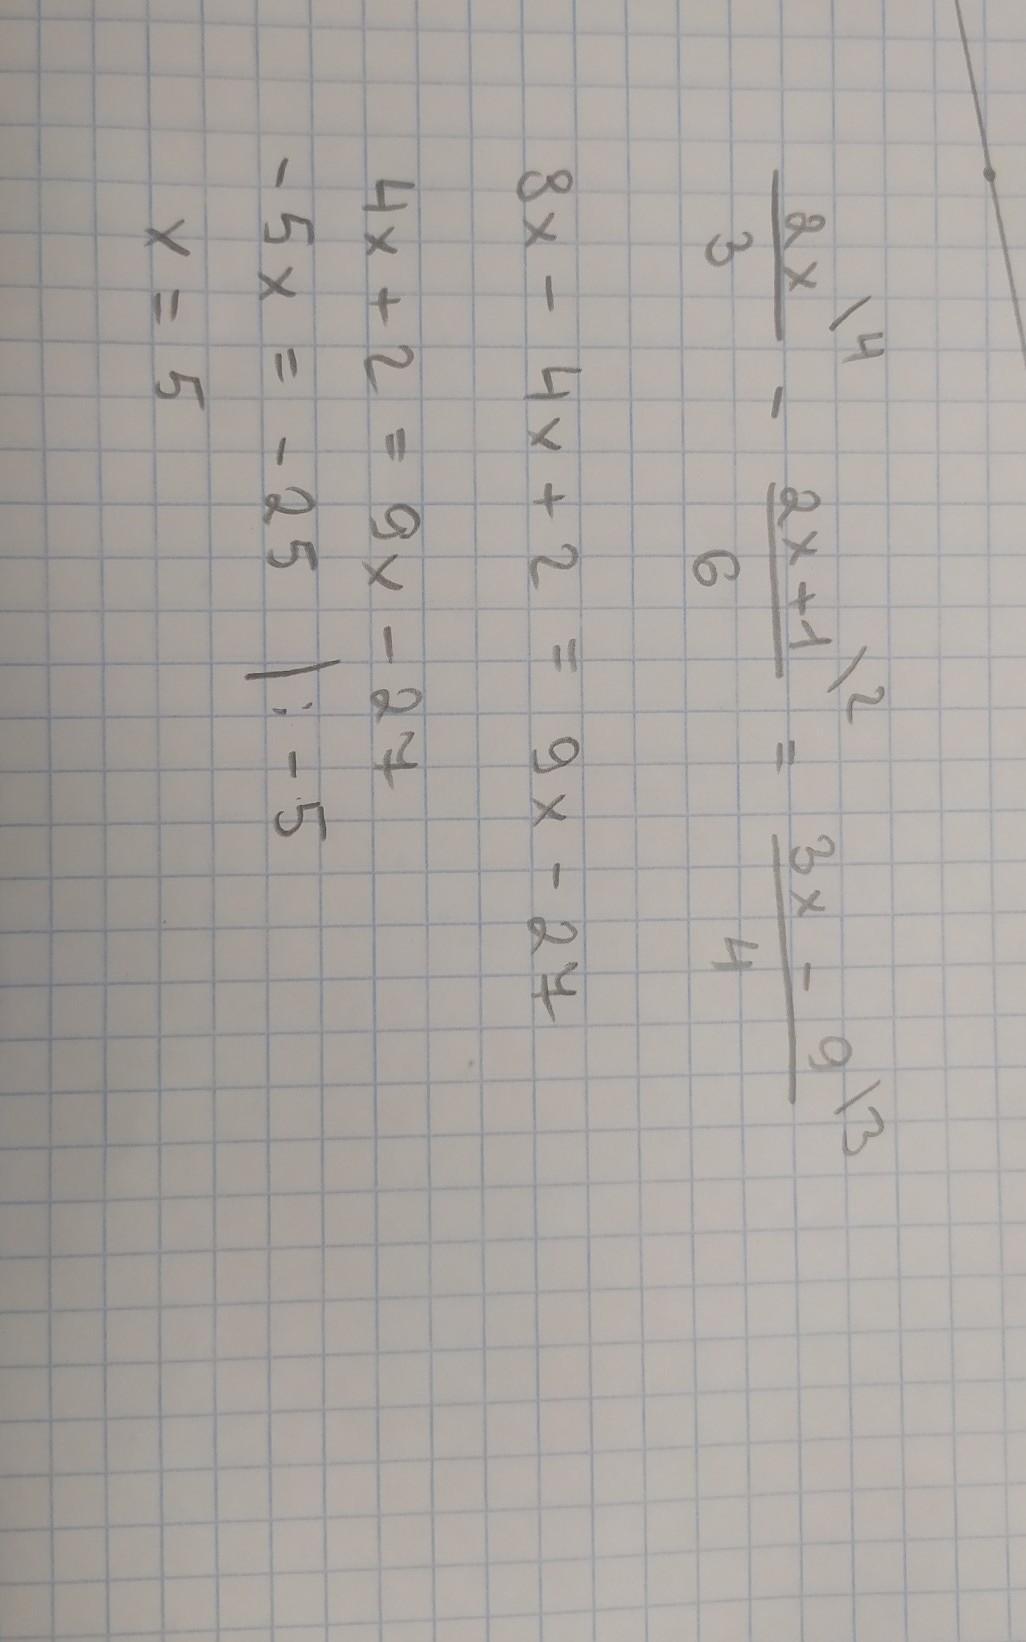 2x\4 / 3 - 2x+1\2 / 6 = 3x - 9\3 / 4
8x - 4x + 2 = 9x - 27
4x + 2 = 9x - 27
-5x = -25 |: -5
x = 5